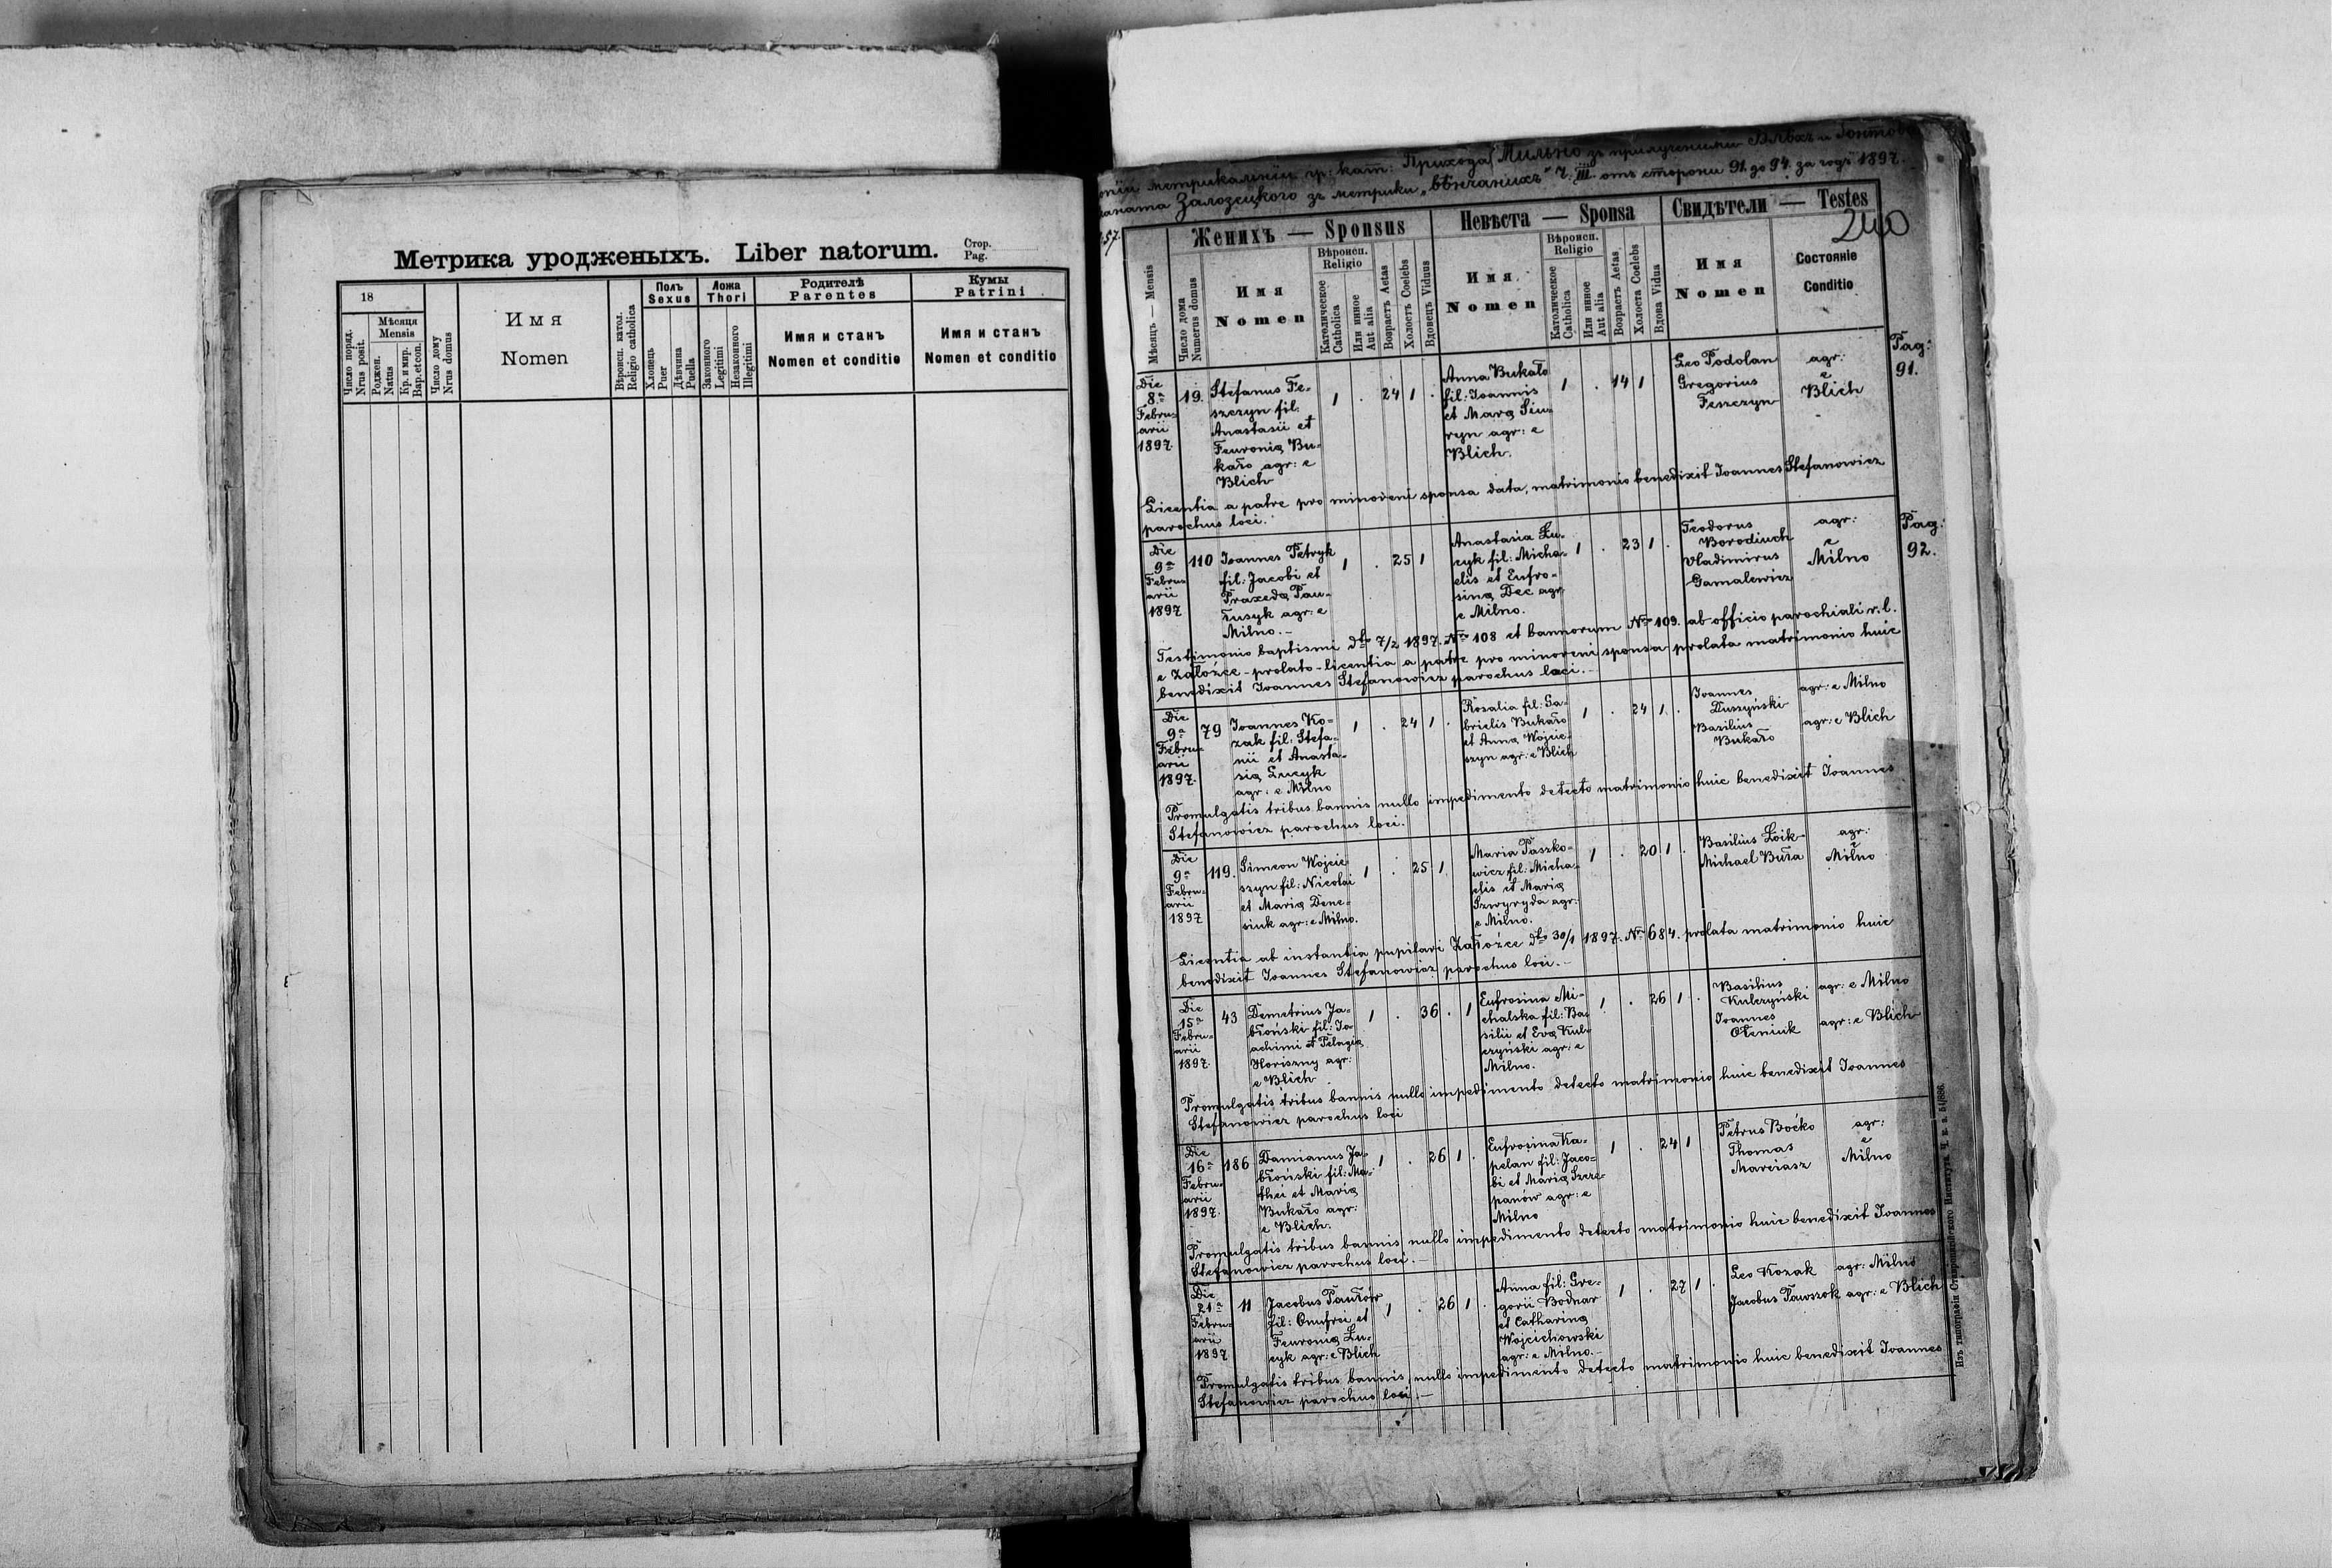 Метрика уродженыхъ. Liber natorum.
Стор.
Pag.
18
Число поряд.
Nrus posit.
Мѣсяця
Mensis
Роджен.
Natus
Кр. и мvр.
Bap. et con.
Число дому
Nrus domus
Имя
Nomen
Вѣроисп. катол.
Religio catholica
Полъ
Sexus
Хлопець
Puer
Дѣвчина
Puella
Ложа
Thori
Законного
Legitimi
Незаконного
Illegitimi
Родителѣ
Parentes
Имя и станъ
Nomen et conditio
Кумы
Patrini
Имя и станъ
Nomen et conditio
метрикальніи гр: кат: Прихода Мильно зъ прилученими Блѣхъ и
Залозецкого зъ метрики „вѣнчаниxъ" Ч. III. отъ сторони 91. до 94. за годъ 1897.
240
Женихъ — Sponsus
Невѣста — Sponsa
Свидѣтели — Testes
Мѣсяцъ — Mensis
Число дома
Numerus domus
Имя
Nomen
Вѣроисп.
Religio
Католическое
Catholica
Или иное
Aut alia
Возрастъ Aetas
Холостъ Coelebs
Вдовецъ Viduus
Имя
Nomen
Вѣроисп.
Religio
Католическое
Catholica
Или инное
Aut alia
Возрастъ Aetas
Холоста Coelebs
Вдова Vidua
Имя
Nomen
Состояніе
Conditio
Die
8ª
Febru-
arii
1897.
19.
Stefanus Fe-
szczyn fil:
Anastasii et
Feuronia Bu-
kało agr: e
Blich
1 . 24 1 .
Anna Bukało
fil: Joannis
et Maria Siu-
ryn agr: e
Blich.
1 . 14 1
Leo Podolan
Gregorius
Feszczyn
agr:
e
Blich
Pag:
91.
Licentia a patre pro minoreni sponsa data, matrimonio benedixit Joannes Stefanowicz
parochus loci.
Die
9ª
Febru-
arii
1897
110
Joannes Petryk
fil: Jacobi et
Praxeda Pau-
łusyk agr: e
Milno. –
1 . 25 1
Anastasia Łu-
cyk fil: Micha-
elis et Eufro-
sina Dec agr
e Milno.
1 . 23 1 .
Teodorus
Borodiuch
Vladimirus
Gamalewicz
agr:
e
Milno
Pag:
92.
Testimonio baptismi dto 7/2 1897. Nro 108 et bannorum Nro 109. ab officio parochiali r. l.
e Załoźce – prolato – licentia a patre pro minoreni sponsa prolata matrimonio huic
benedixit Joannes Stefanowicz parochus loci. –
Die
9ª
Febru-
arii
1897.
79
Joannes Ko-
zak fil: Stefa-
nii et Anasta-
sia Łucyk
agr: e Milno
1 . 24 1 .
Rosalia fil: Ga-
brielis Bukało
et Anna Wojcie-
szyn agr: e Blich
1 . 24 1 .
Joannes
Duszyński
Basilius
Bukało
agr: e Milno
agr: e Blich
Promulgatis tribus bannis nullo impedimento detecto matrimonio huic benedixit Joannes
Stefanowicz parochus loci.
Die
9ª
Febru-
arii
1897
119.
Simeon Wojcie
szyn fil: Nicolai
et Maria Dene-
siuk agr: e Milno.
1 . 25 1
Maria Paszko-
wicz fil: Micha-
elis et Maria
Szwyryda agr:
e Milno.
1 . 20 1 .
Basilius Łoik
Michael Buła
agr:
e
Milno
Licentia ab instantia pupilari Załoźce dto 30/1 1897. Nro 684. prolata matrimonio huic
benedixit Joannes Stefanowicz parochus loci. –
Die
15ª
Febru-
arii
1897.
43
Demetrius Ja-
błoński fil: Jo-
achimi et Pelagia
Horiszny agr:
e Blich
1 . 36 . 1
Eufrosina Mi-
chalska fil: Ba-
silii et Eva Kul-
czynski agr: e
Milno.
1 . 26 1 .
Basilius
Kulczyński
Joannes
Ołeniuk
agr: e Milno
agr: e Blich
Promulgatis tribus bannis nullo impedimento detecto matrimonio huic benedixit Joannes
Stefanowicz parochus loci
Die
16ª
Febru-
arii
1897.
186
Damianus Ja-
błoński fil: Ma-
thei et Maria
Bukało agr:
e Blich.
1 . 26 1 .
Eufrosina Ka-
pelan fil: Jaco-
bi et Maria Szcze-
panów agr: e
Milno
1 . 24 1
Petrus Boćko
Thomas
Marciasz
agr:
e
Milno
Promulgatis tribus bannis nullo impedimento detecto matrimonio huic benedixit Joannes
Stefanowicz parochus loci. –
Die
21ª
Febru-
arii
1897
11
Jacobus Pawłów
fil: Onufrei et
Feuronia Łu-
cyk agr: e Blich
1 . 26 1 .
Anna fil: Gre-
gorii Bodnar
et Catharina
Wojcichowski
agr: e Milno. –
1 . 27 1 .
Leo Kozak agr: Milno
Jacobus Pawszok agr: e Blich
Promulgatis tribus bannis, nullo impedimento detecto matrimonio huic benedixit Joannes
Stefanowicz parochus loci –
Изъ типографіи Ставропигійского Института. Ч. к. з. 51/886.